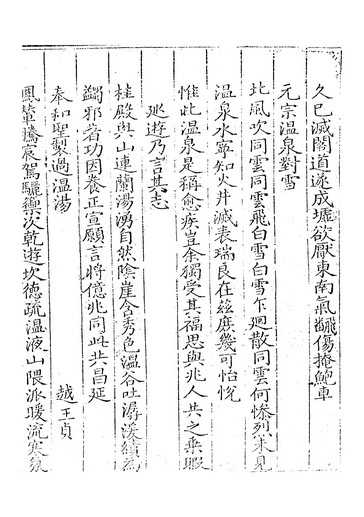 久已滅閣道遂成墟欲厭東南氣翻傷掩鮑車
元宗溫泉對雪
北風吹同雲同雲飛白雪白雪乍迴散同雲何慘烈未見
溫泉水寧知火井滅表瑞良在茲庶幾可怡悅
惟此溫泉是稱愈疾豈余獨受其福思與兆人共之乘暇
巡遊乃言其志
桂殿與山連蘭湯湧自然陰崖含秀色溫谷吐潺湲績為
蠲邪著功因養正宣願言將億兆同此共昌延
奉和聖製過溫湯
越王貞
鳳輦騰宸駕驪籞次乾遊坎德疏溫液山隈派暖流寒氛